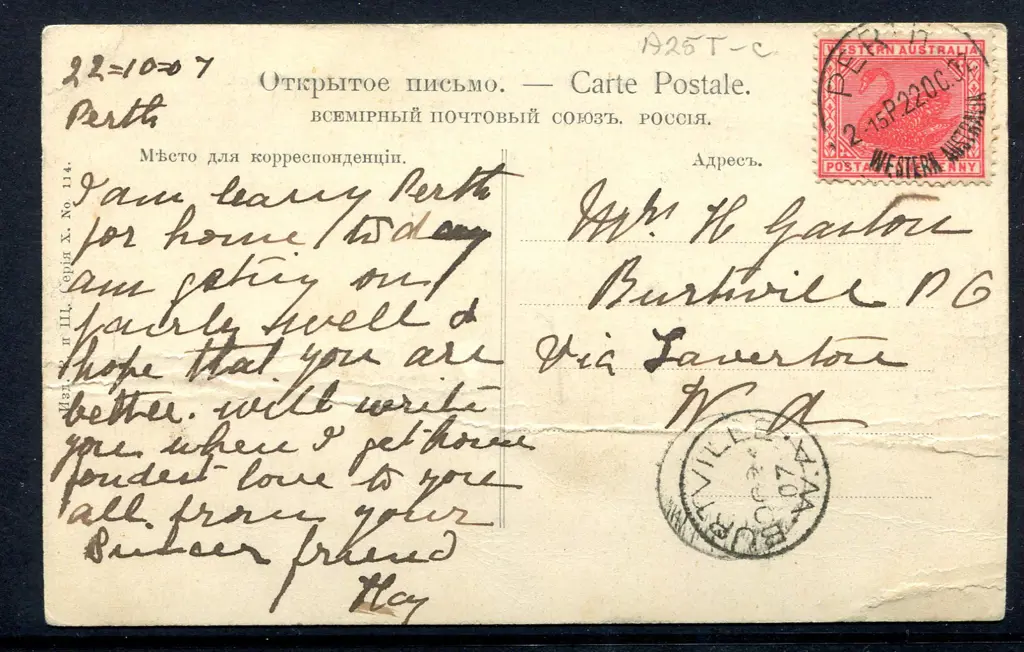 A25T-c
22=10=07
Perth
Открытое письмо. — Carte Postale.
ВСЕМІРНЫЙ ПОЧТОВЫЙ СОЮЗЪ. РОССІЯ.
Мѣсто для корреспонденціи.
I am leavy Perth
for home to day
am getting on
fairly well &
hope that you are
better. will write
you when I get home
fondest love to you
all from your
Sincer friend
May
Адресъ.
Mrs H Gaston
Burtville P O
Via Laverton
W A
WESTERN AUSTRALIA
POSTAGE PENNY
PERTH
2-15P.22OC.07
WESTERN AUSTRALIA
BURTVILLE. W.A
07
Серія X. No 114.